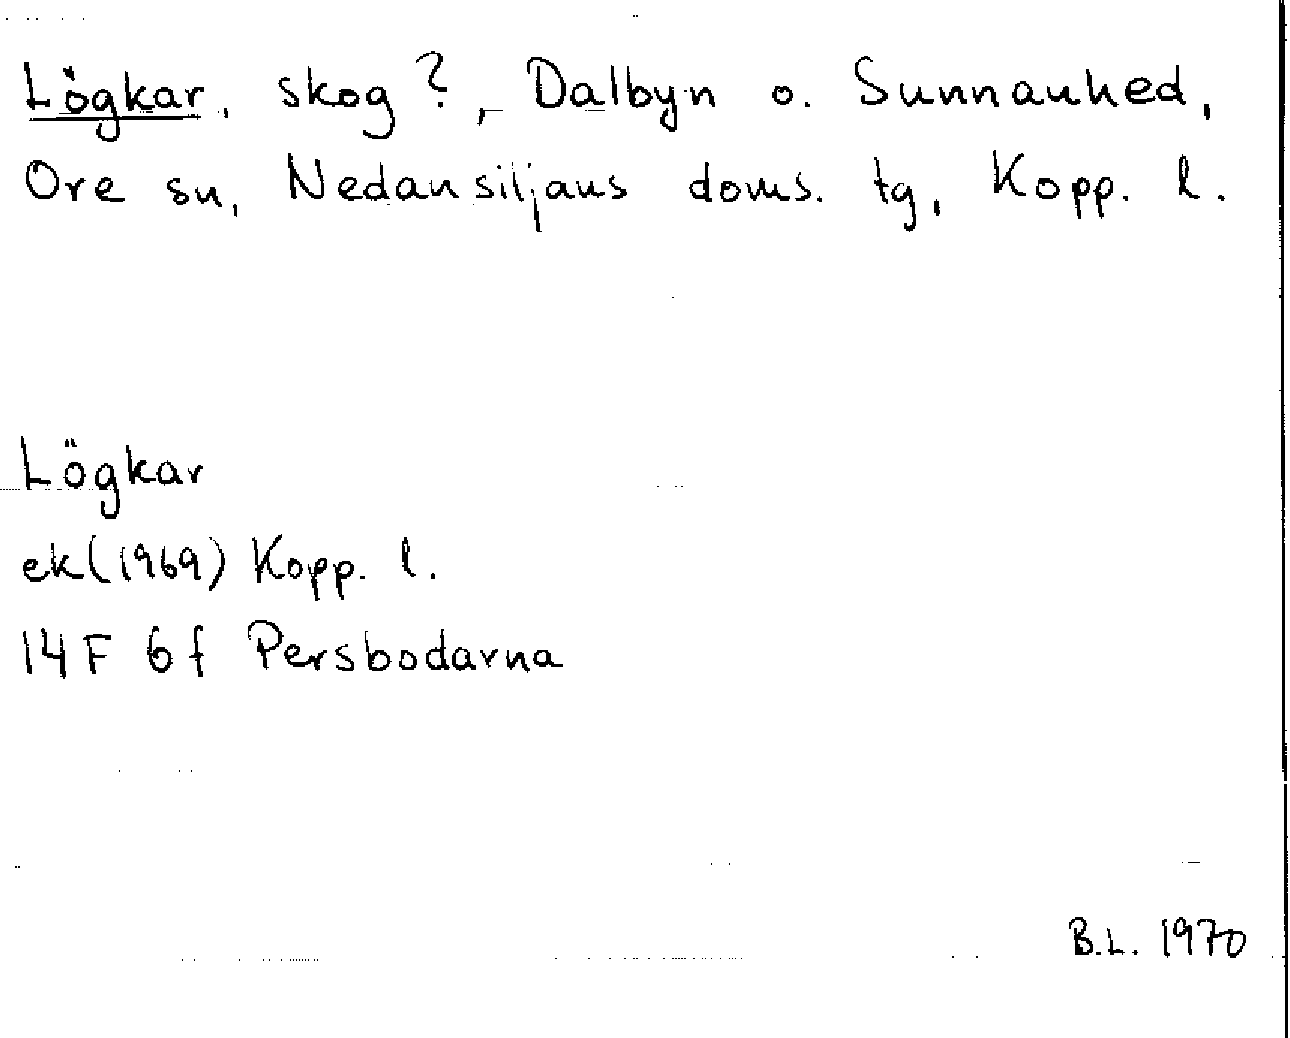 Lögkar, skog?, Dalbyn o. Sunnanhed,
Ore sn, Nedansiljans doms. tg, Kopp. l.
Lögkar
ek(1969) Kopp. l.
14F 6f Persbodarna
B.L. 1970